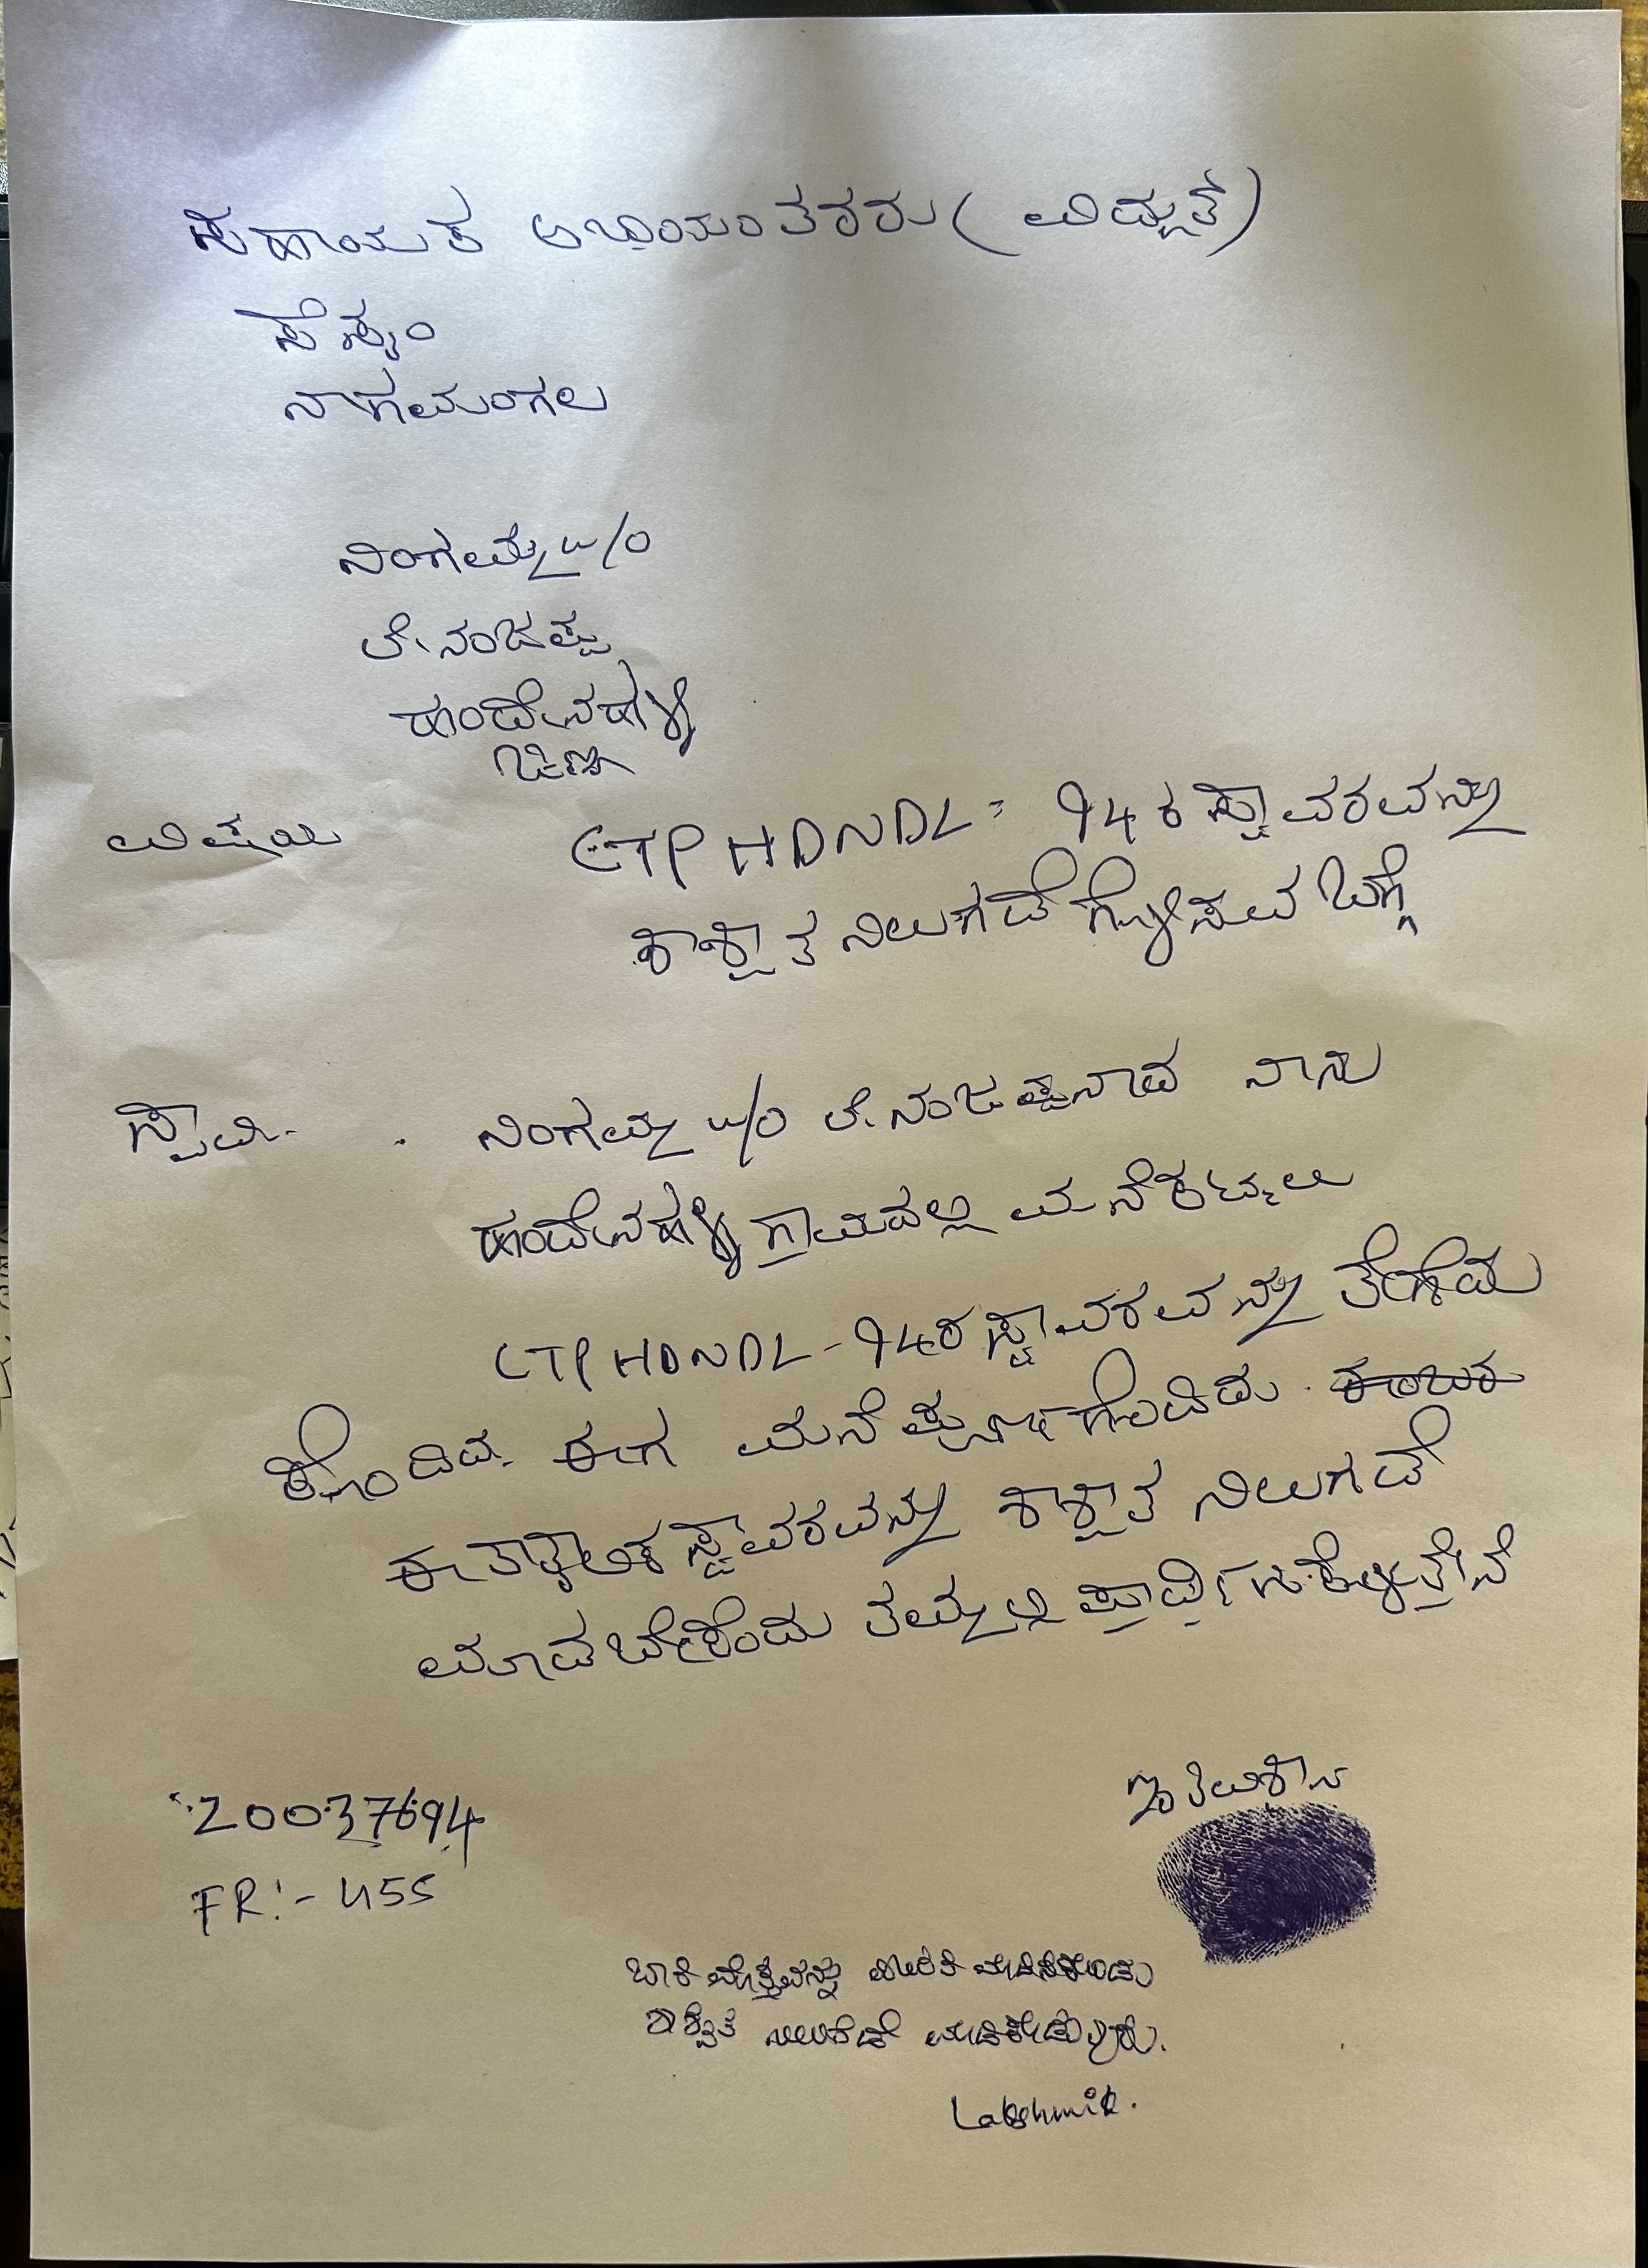 ಸಹಾಯಕ ಅಭಿಯಂತರರು ( ವಿದ್ಯುತ್)
ಸೆಸ್ಕಂ
ನಾಗಮಂಗಲ
ನಿಂಗಮ್ಮ w/o
ಲೇ. ನಂಜಪ್ಪ
ಹಂದೇನಹಳ್ಳಿ
ವಿಷಯ CTPHDNDL= 94 ಕ ಸ್ಥಾವರವನ್ನು
ಶಾಶ್ವಾತ ನಿಲುಗಡೆಗೊಳಿಸುವ ಬಗ್ಗೆ
ಸ್ವಾಮಿ. . ನಿಂಗಮ್ಮ w/o ಲೇ. ನಂಜಪ್ಪನಾದ ನಾನು
ಹಂದೇನಹಳ್ಳಿ ಗ್ರಾಮದಲ್ಲಿ ಮನೆ ಕಟ್ಟಲು
CTPHDNDL-94ಕ ಸ್ಥಾವರವನ್ನು ತೆಗೆದು
ಕೊಂಡಿದ್ದು. ಈಗ ಮನೆ ಪೂರ್ಣಗೊಂಡಿದು.
ಈ ತಾತ್ಕಾಲಿಕ ಸ್ಥಾವರವನ್ನು ಶಾಶ್ವಾತ ನಿಲುಗಡೆ
ಮಾಡಬೇಕೆಂದು ತಮ್ಮಲ್ಲಿ ಪ್ರಾರ್ಥಿಸಿಕೊಳ್ಳುತ್ತೇನೆ
ಇತಿ ವಿಶ್ವಾಸಿ
20037694
FR:- 455
ಬಾಕಿ ಮೊತ್ತವನ್ನು ಪಾವತಿ ಮಾಡಿಸಿಕೊಂಡು
ಶಾಶ್ವತ ನಿಲುಗಡೆ ಮಾಡಿಕೊಡುವುದು.
Lakshmi R.